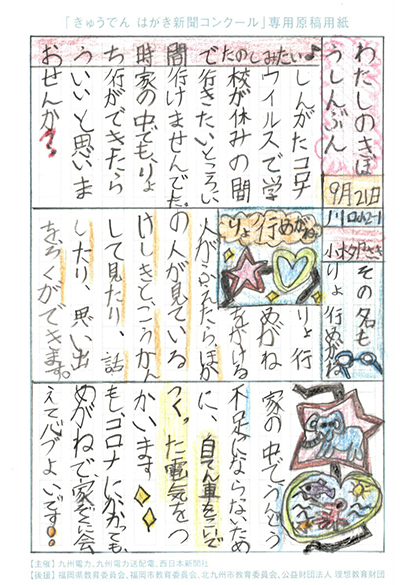 「きゅうでん はがき新聞コンクール」専用原稿用紙
わたしのきぼ
うしんぶん
9月21日
川口小2-1
おうち時間でたのしみたい♪
しんがたコロナ
ウイルスで学
校が休みの間
行きたいところに
行けませんでした。
家の中でも、りょ
行ができたら
いいと思いま
せんか?
その名も
りょ行めがね
りょ行めがね
りょ行
めがね
をかける
人がふえたら、ほか
の人が見ている
けしきと、こうかん
して見たり、話
したり、思い出
ろくができます。
家の中でつかう
不足にならないため
に、自てん車をこいで
つくった電気をつ
かいます
もし、コロナにかかっても
めがねで、家ぞくに会
えて
よいです
【主催】九州電力、九州電力送配電、西日本新聞社
【後援】福岡県教育委員会、福岡市教育委員会、北九州市教育委員会、公益財団法人理想教育財団